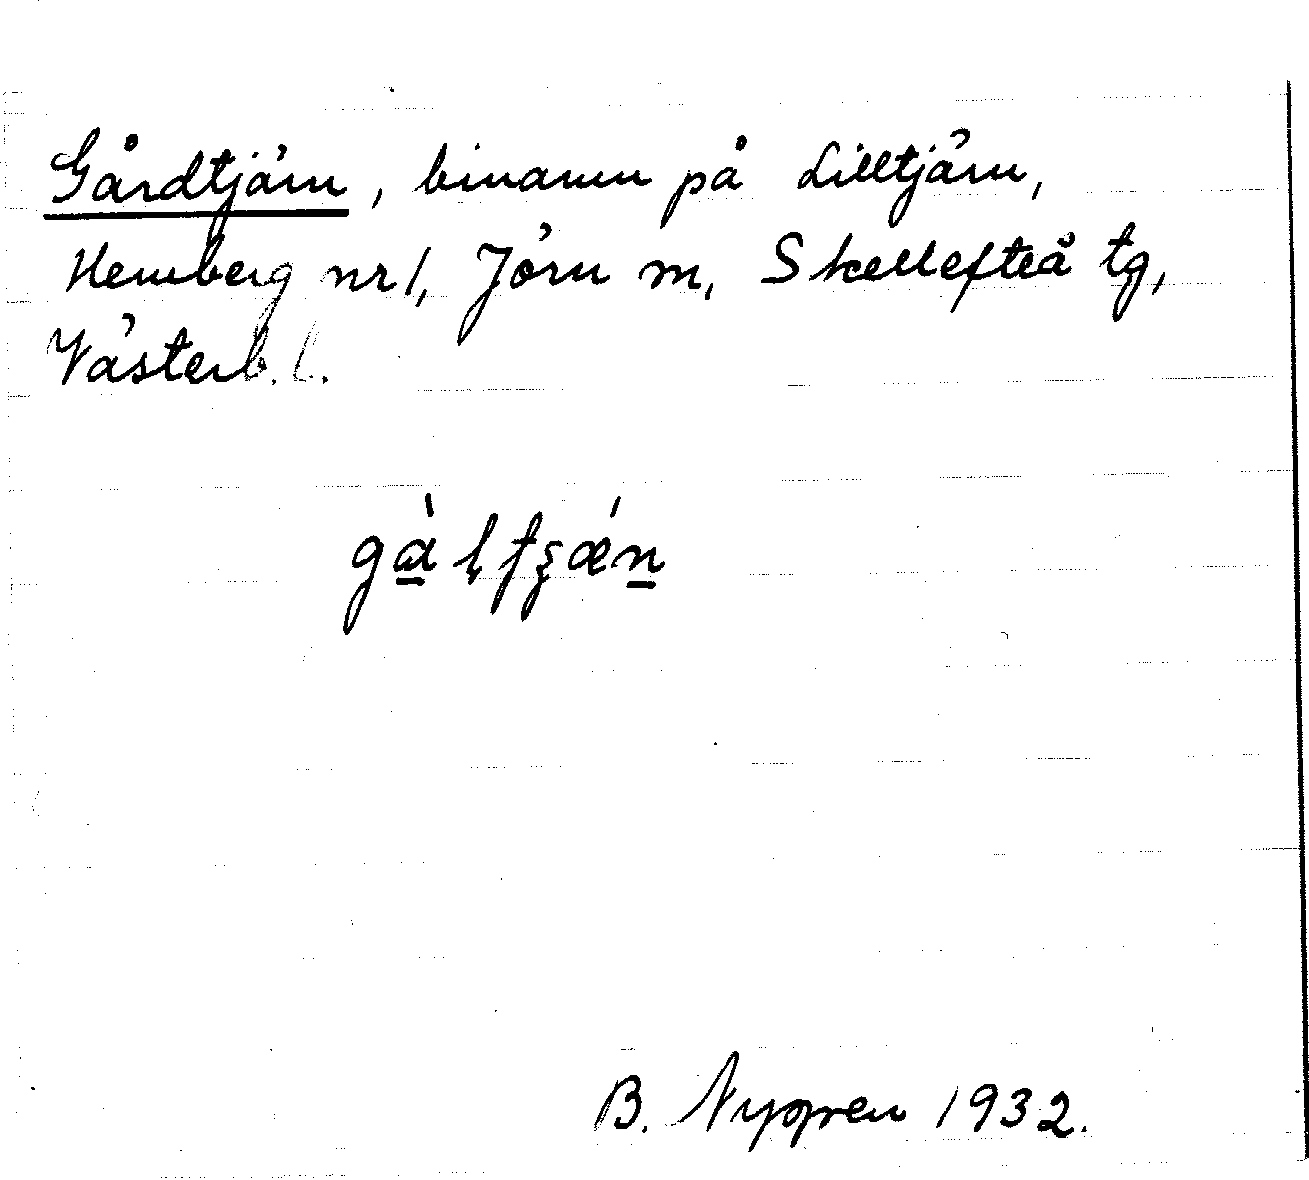 Gårdtjärn, binamn på Lilltjärn,
Hemberg nr 1, Jörn sn, Skellefteå tg,
Västerb. l.
B. Nygren 1932.